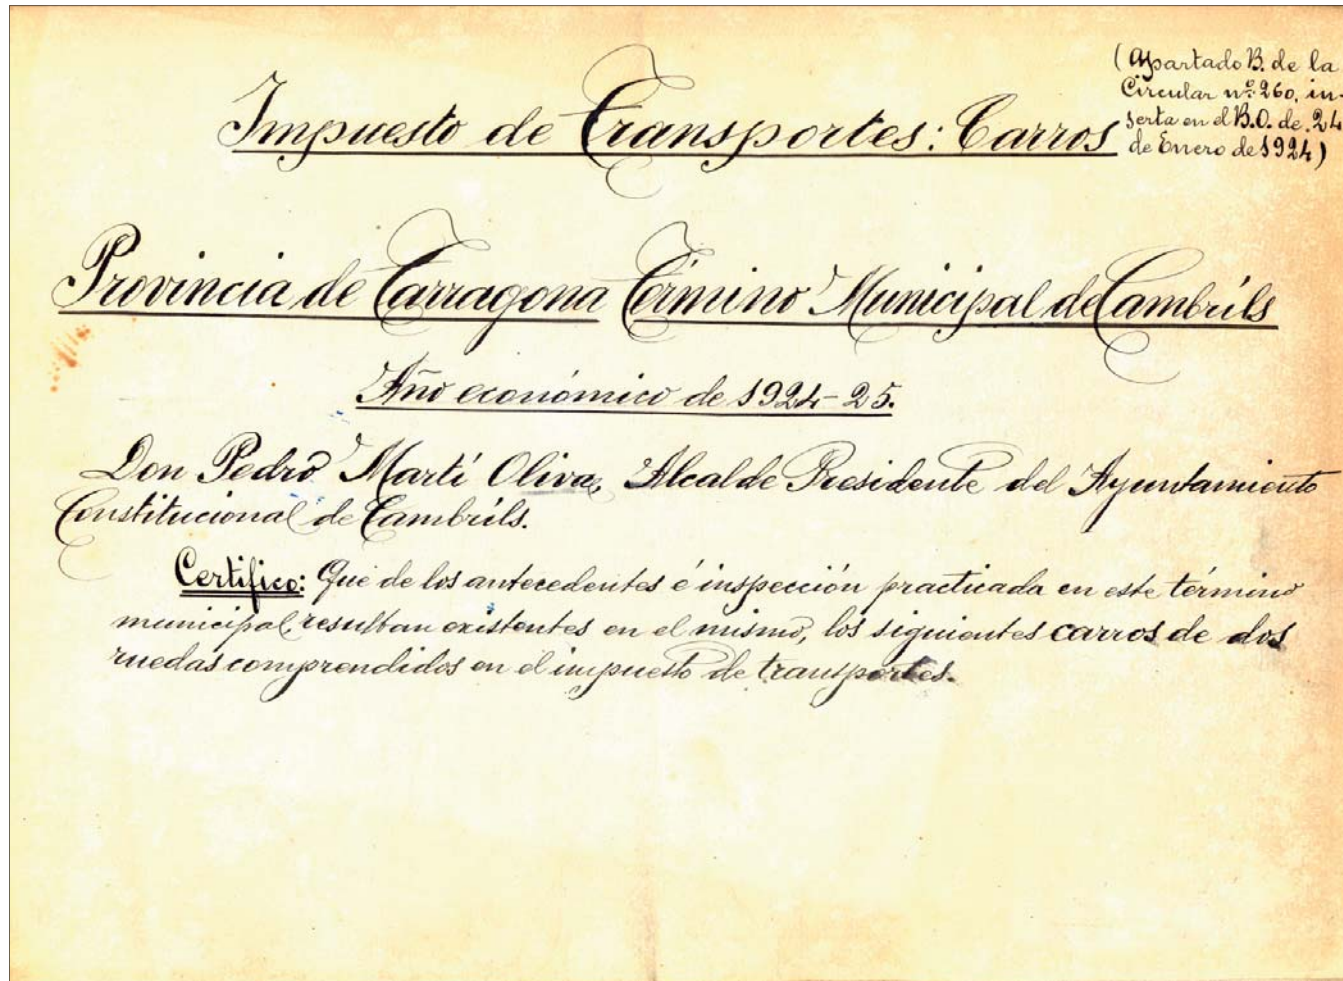 (Apartado B. de la
Circular nº 260, in-
serta en el B.O. de 24
de Enero de 1924)
Impuesto de Transportes: Carros
Provincia de Tarragona Término Municipal de Cambrils
Año económico de 1924-25.
Don Pedro Martí Oliva, Alcalde Presidente del Ayuntamiento
Constitucional de Cambrils.
Certifico: Que de los antecedentes é inspección practicada en este término
municipal, resultan existentes en el mismo, los siguientes carros de dos
ruedas comprendidos en el impuesto de transportes.